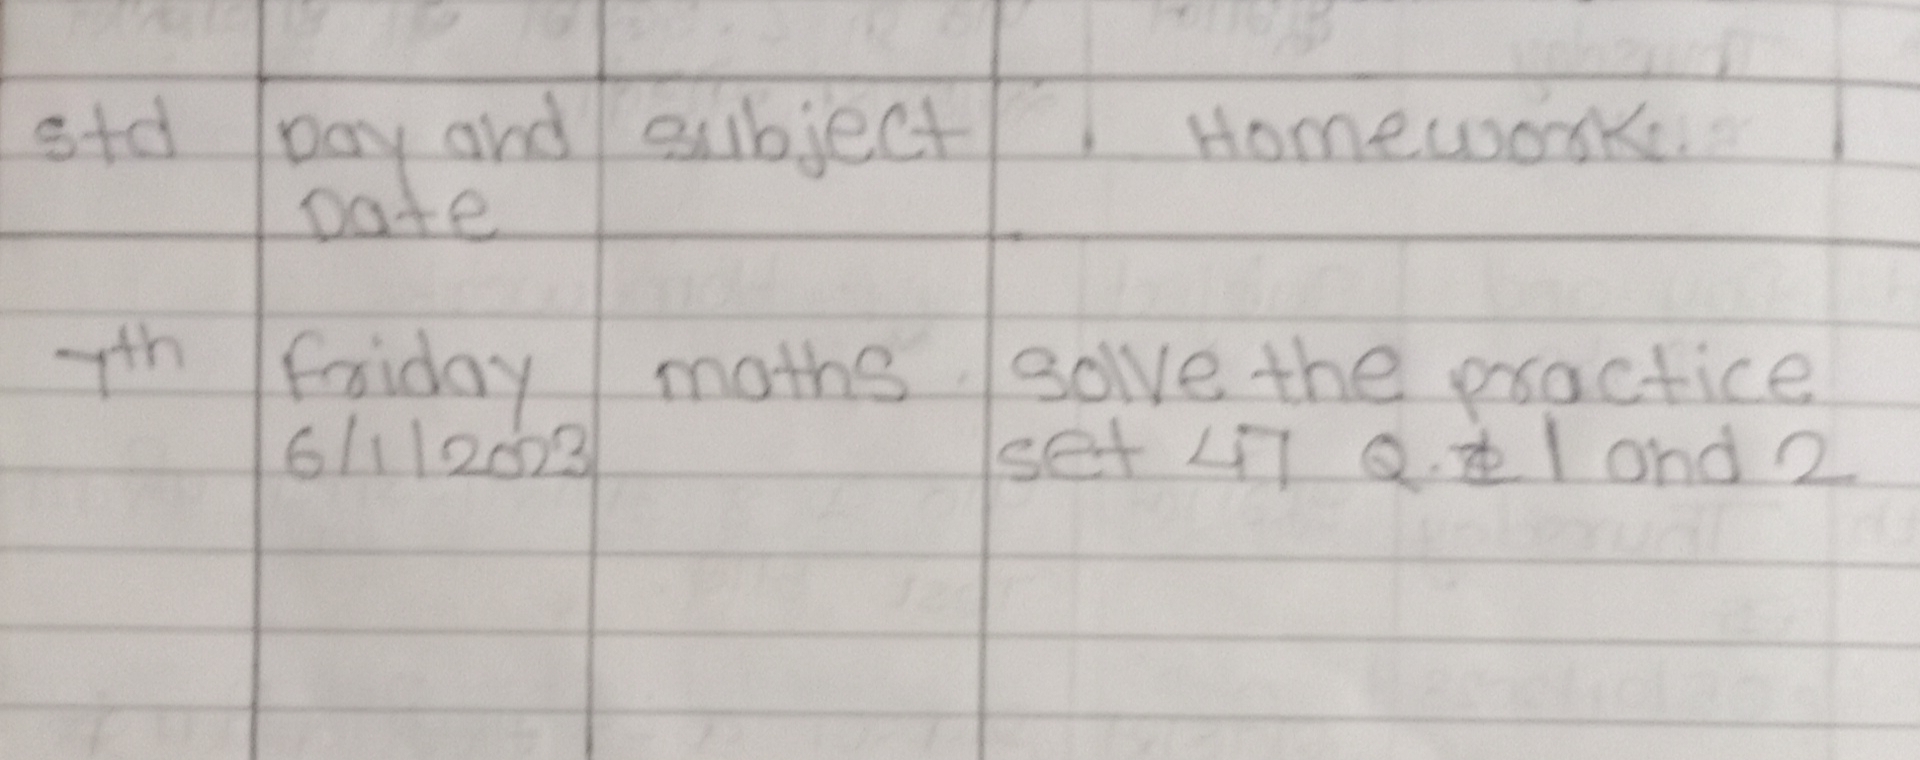 std Day and subject Homework.
Date
7th friday maths solve the practice
6/1/2023 set 47 Q. 1 and 2